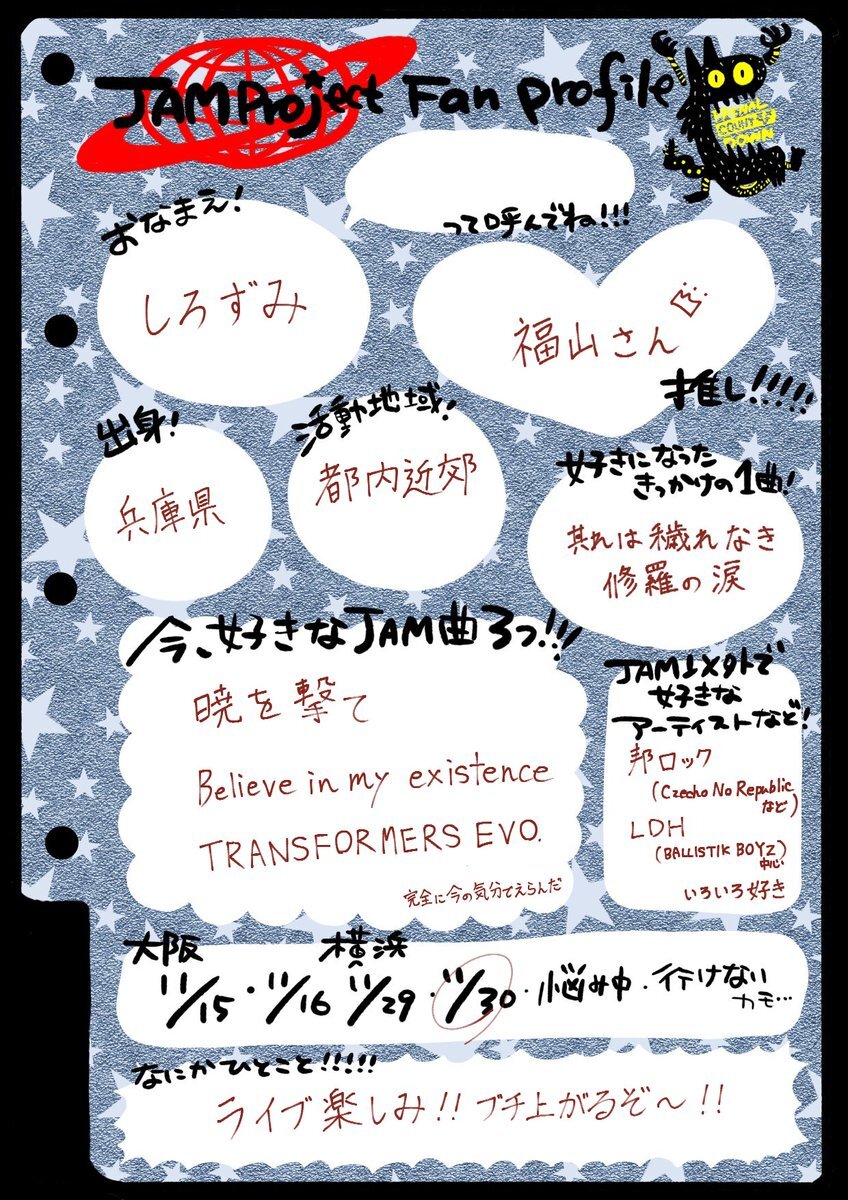 JAM Project Fan profile
FINAL
COUNTDOWN
おなまえ!
って呼んでね!!!
しろずみ
福山さん
推し!!!!!
出身!
活動地域!
兵庫県
都内近郊
好きになった
きっかけの1曲!
其れは穢れなき
修羅の涙
今、好きなJAM曲3つ!!!
暁を撃て
Believe in my existence
TRANSFORMERS EVO.
完全に今の気分でえらんだ
JAM以外で
好きな
アーティストなど!
邦ロック
(Czecho No Republic
など)
LDH
(BALLISTIK BOYZ)
中心
いろいろ好き
大阪 横浜
11/15・11/16 11/29・11/30・悩み中・行けない
カモ…
なにかひとこと!!!!!
ライブ楽しみ!! ブチ上がるぞ〜!!